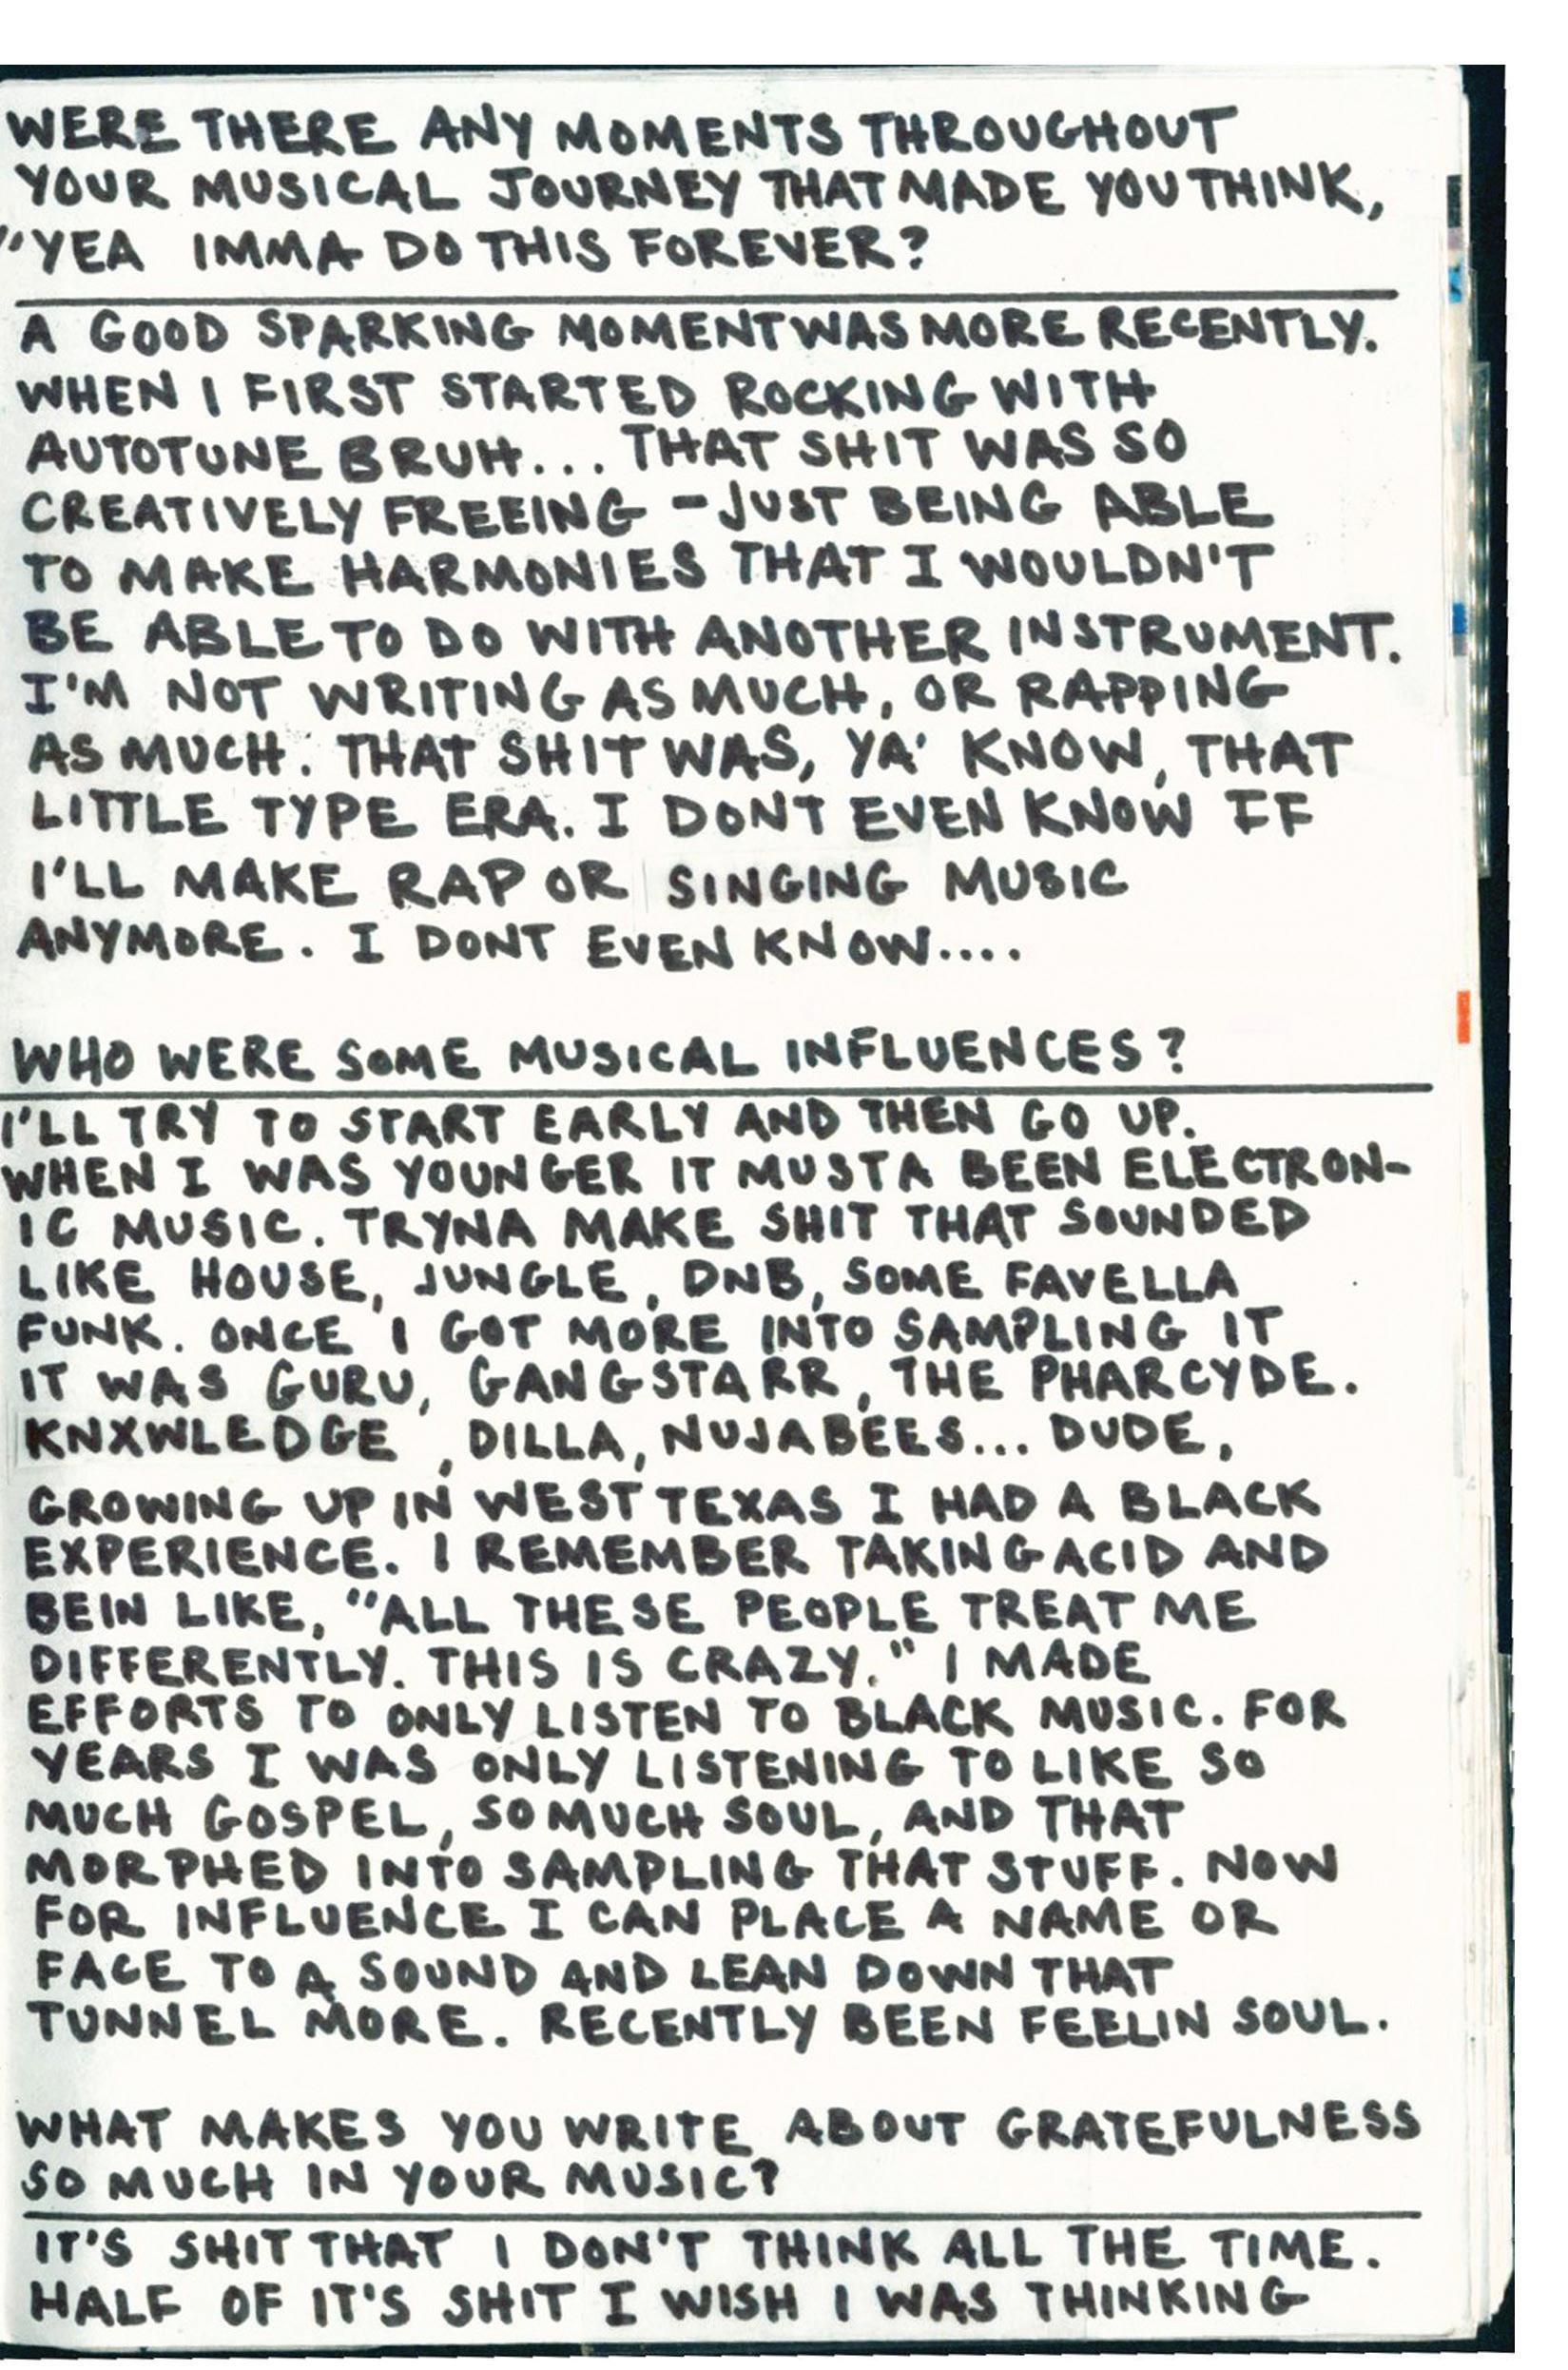 WERE THERE ANY MOMENTS THROUGHOUT
YOUR MUSICAL JOURNEY THAT MADE YOU THINK,
"YEA IMMA DO THIS FOREVER?
A GOOD SPARKING MOMENT WAS MORE RECENTLY.
WHEN I FIRST STARTED ROCKING WITH
AUTOTUNE BRUH... THAT SHIT WAS SO
CREATIVELY FREEING - JUST BEING ABLE
TO MAKE HARMONIES THAT I WOULDN'T
BE ABLE TO DO WITH ANOTHER INSTRUMENT.
I'M NOT WRITING AS MUCH, OR RAPPING
AS MUCH. THAT SHIT WAS, YA' KNOW, THAT
LITTLE TYPE ERA. I DONT EVEN KNOW IF
I'LL MAKE RAP OR SINGING MUSIC
ANYMORE. I DONT EVEN KNOW....
WHO WERE SOME MUSICAL INFLUENCES?
I'LL TRY TO START EARLY AND THEN GO UP.
WHEN I WAS YOUNGER IT MUSTA BEEN ELECTRON-
IC MUSIC. TRYNA MAKE SHIT THAT SOUNDED
LIKE HOUSE, JUNGLE, DNB, SOME FAVELLA
FUNK. ONCE I GOT MORE INTO SAMPLING IT
IT WAS GURU, GANGSTARR, THE PHARCYDE.
KNXWLEDGE, DILLA, NUJABEES... DUDE,
GROWING UP IN WEST TEXAS I HAD A BLACK
EXPERIENCE. I REMEMBER TAKING ACID AND
BEIN LIKE, "ALL THESE PEOPLE TREAT ME
DIFFERENTLY. THIS IS CRAZY." I MADE
EFFORTS TO ONLY LISTEN TO BLACK MUSIC. FOR
YEARS I WAS ONLY LISTENING TO LIKE SO
MUCH GOSPEL, SO MUCH SOUL, AND THAT
MORPHED INTO SAMPLING THAT STUFF. NOW
FOR INFLUENCE I CAN PLACE A NAME OR
FACE TO A SOUND AND LEAN DOWN THAT
TUNNEL MORE. RECENTLY BEEN FEELIN SOUL.
WHAT MAKES YOU WRITE ABOUT GRATEFULNESS
SO MUCH IN YOUR MUSIC?
IT'S SHIT THAT I DON'T THINK ALL THE TIME.
HALF OF IT'S SHIT I WISH I WAS THINKING